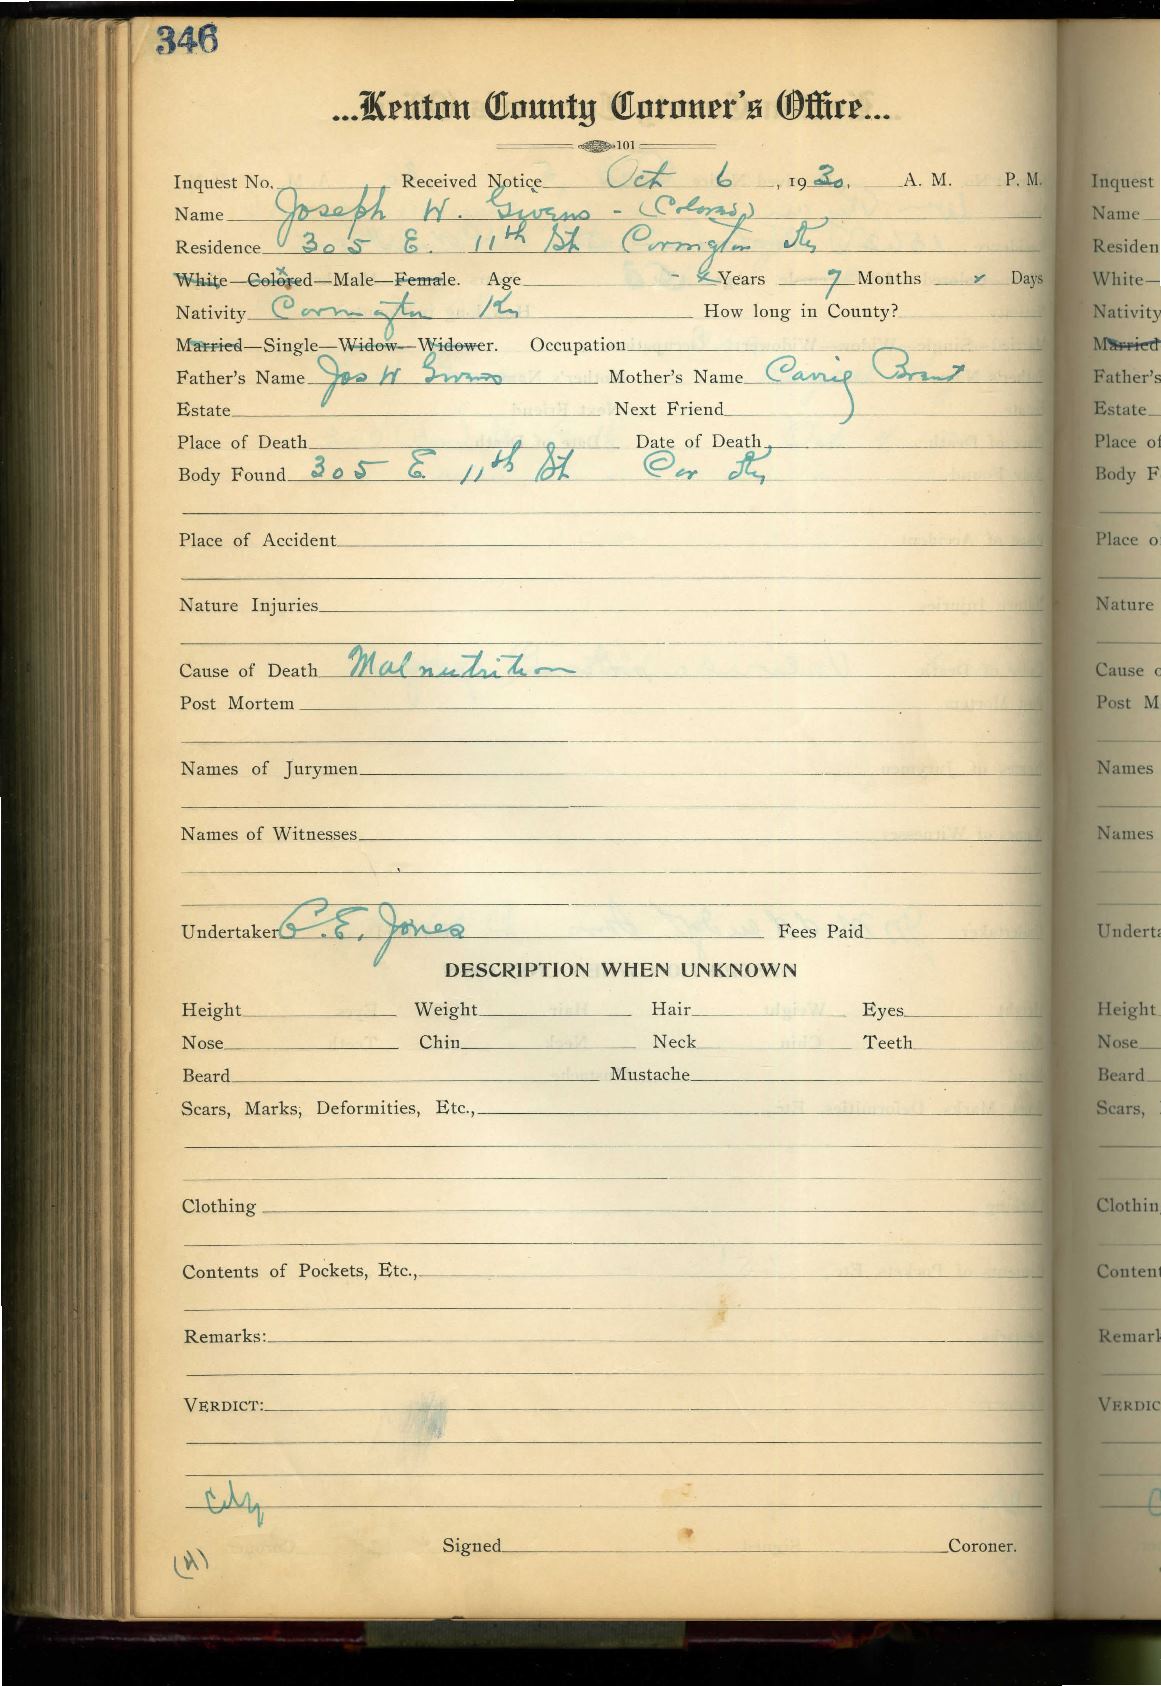 346
...Kenton County Coroner's Office...
101
Inquest No. Received Notice Oct 6, 1930. A. M. P. M.
Name Joseph W. Givens - (Colored)
Residence 305 E. 11th St Covington Ky
White—Colored—Male—Female. Age - x Years 7 Months x Days
Nativity Covington Ky How long in County?
Married—Single—Widow—Widower. Occupation
Father's Name Jos W Givens Mother's Name Carrie
Estate Next Friend
Place of Death Date of Death
Body Found 305 E 11th St Cov Ky
Place of Accident
Nature Injuries
Cause of Death Malnutrition
Post Mortem
Names of Jurymen
Names of Witnesses
Undertaker C.E. Jones Fees Paid
DESCRIPTION WHEN UNKNOWN
Height Weight Hair Eyes
Nose Chin Neck Teeth
Beard Mustache
Scars, Marks, Deformities, Etc.,
Clothing
Contents of Pockets, Etc.,
Remarks:
VERDICT:
City
Signed Coroner.
(H)
Inquest
Name
Residen
White—
Nativity
Married
Father's
Estate
Place of
Body F
Place o
Nature
Cause o
Post M
Names
Names
Underta
Height
Nose
Beard
Scars,
Clothin
Content
Remark
VERDIC